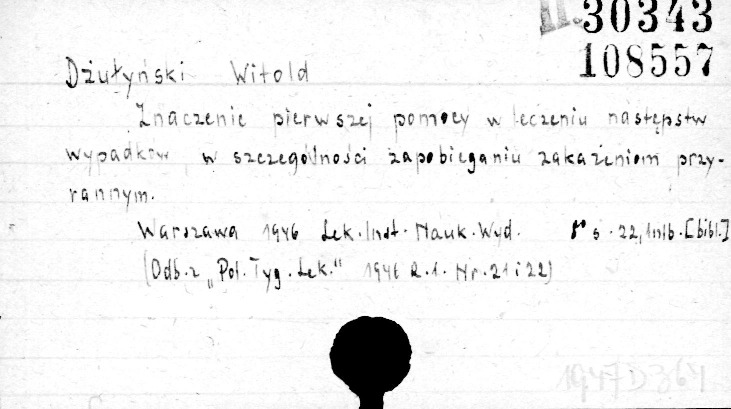 II. 30343
108557
Dżułyński Witold
Znaczenie pierwszej pomocy w leczeniu następstw
wypadków, w szczególności zapobieganiu zakażeniom przy-
rannym.
Warszawa 1946 Lek. Inst. Nauk. Wyd. 8° s. 22, 1 nlb. [bibl.]
(Odb. z „Pol. Tyg. Lek." 1946 R. 1. Nr. 21 i 22)
1947 D 364